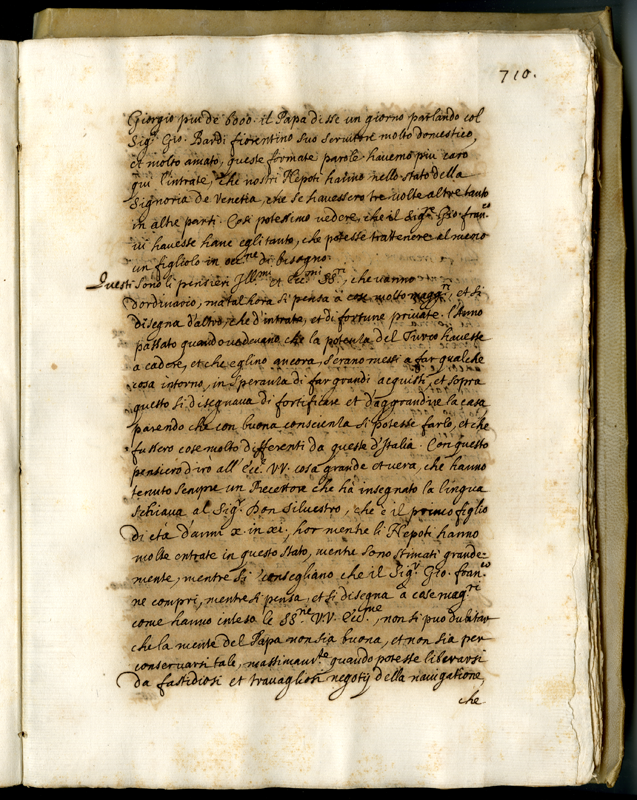 710.
Giorgio piu de 6000. il Papa disse un giorno parlando col
Sig.r Gio. Bardi fiorentino suo servitore molto domestico,
et molto amato, queste formate parole havemo piu caro
qui l'intrate, che nostri Nepoti hanno nello stato della
Signoria de Venetia, che se havessero tre volte altre tanto
in altre parti. Cosi potessimo vedere, che il Sig.r Gio. fran.co
ivi havesse hane egli tanto, che potesse trattenere al meno
un figliolo in occ.ne di bisogno.
Questi sono li pensieri Ill.mi et Ecc.mi SS.ri, che vanno
d'ordinario, ma tal hora si pensa a cose molto magg.ri, et si
disegna d'altro, che d'intrata, et di fortune private. l'Anno
passato quando vedevano che la potenza del Turco havesse
a cadere, et che eglino ancora, serano messi a far qualche
cosa intorno, in speranza di far grandi acquisti, et sopra
questo si disegnava di fortificare et d'aggrandire la casa,
parendo che con buona conscienza si potesse farlo, et che
fussero cose molto differenti da queste d'Italia. Con questo
pensiero diro all' Ecc. VV. cosa grande et vera, che hanno
tenuto sempre un Precettore che ha insegnato la lingua
schiava al Sig.r Don Silvestro, che è il primo figlio
di età d'anni x in xi, hor mentre li Nepoti hanno
molte entrate in questo stato, mentre sono stimati grande-
mente, mentre si consegliano che il Sig.r Gio. fran.co
ne compri, mentre si pensa, et si disegna à cose mag.ri
come hanno inteso le SS.ne VV. Ecc.me, non si puo dubitar
che la mente del Papa non sia buona, et non sia per
conservarsi tale, massimam.te quando potesse liberarsi
da fastidiosi et travagliosi negotij della navigatione,
che